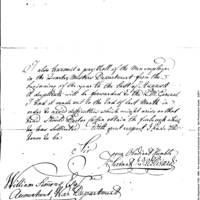 I also transmit a pay Roll of the men employed
in the Quarter Masters Department from the
beginning of the year to the last of August
A duplicate will be forwarded to the Q M General
I had it made out to the End of last Month in
order to avoid difficulties which might arise on that
he has subsisted. With great respect I have the
honor to be
Sir
your Obedient Humble
Servant
William Simmons Esq
Accountant War Department